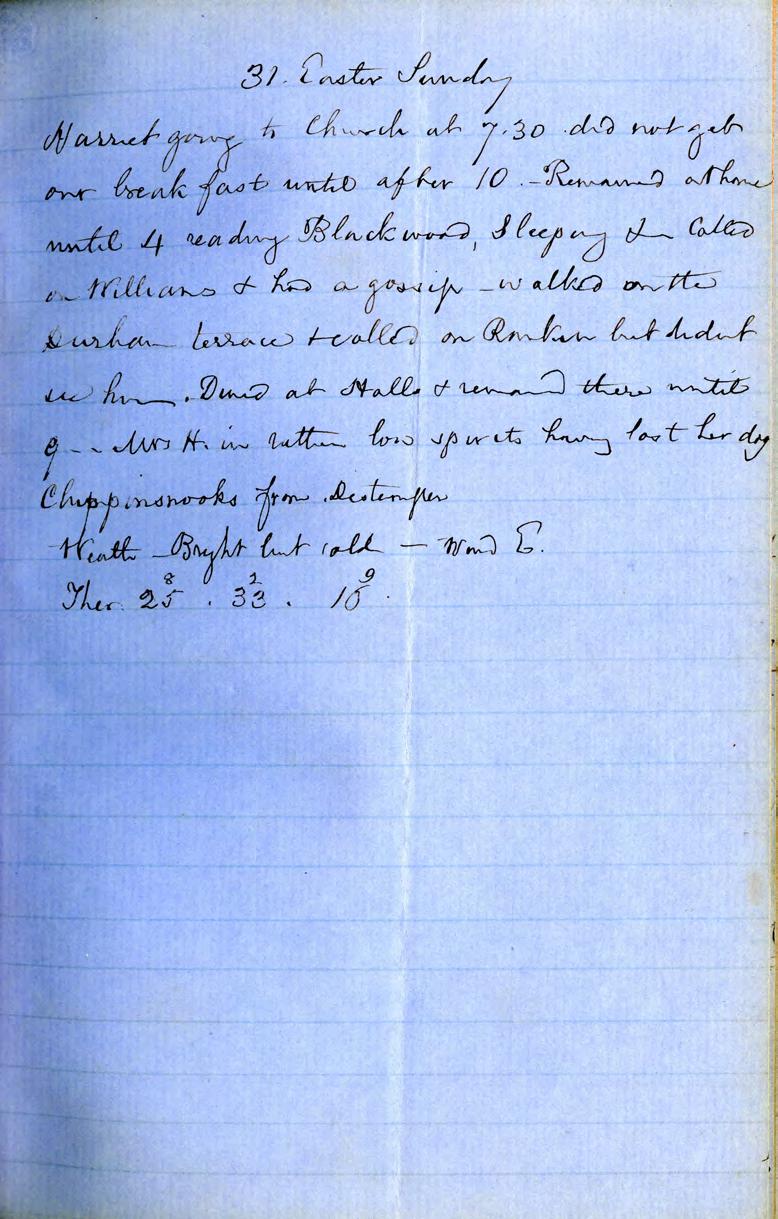 31. Easter Sunday
Harriet going to Church at 7.30 did not get
our breakfast until after 10. - Remained at home
until 4 reading Blackwood, Sleeping &c Called
on Williams & had a gossip - walked on the
Durham terrace & called on Rankin but didnt
see him. Dined at Halls & remained there until
9 - - Mrs H. in rather low spirits having lost her dog
Chippinsnooks from Distemper
Weather - Bright but cold - Wind E.
8 2 9
Ther. 25 . 33 . 15 .